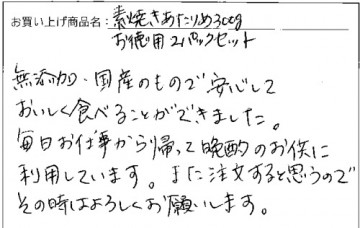 お買い上げ商品名：素焼きあたりめ300g
お徳用2パックセット
無添加・国産のもので安心して
おいしく食べることができました。
毎日お仕事から帰って晩酌のお供に
利用しています。また注文すると思うので
その時はよろしくお願いします。